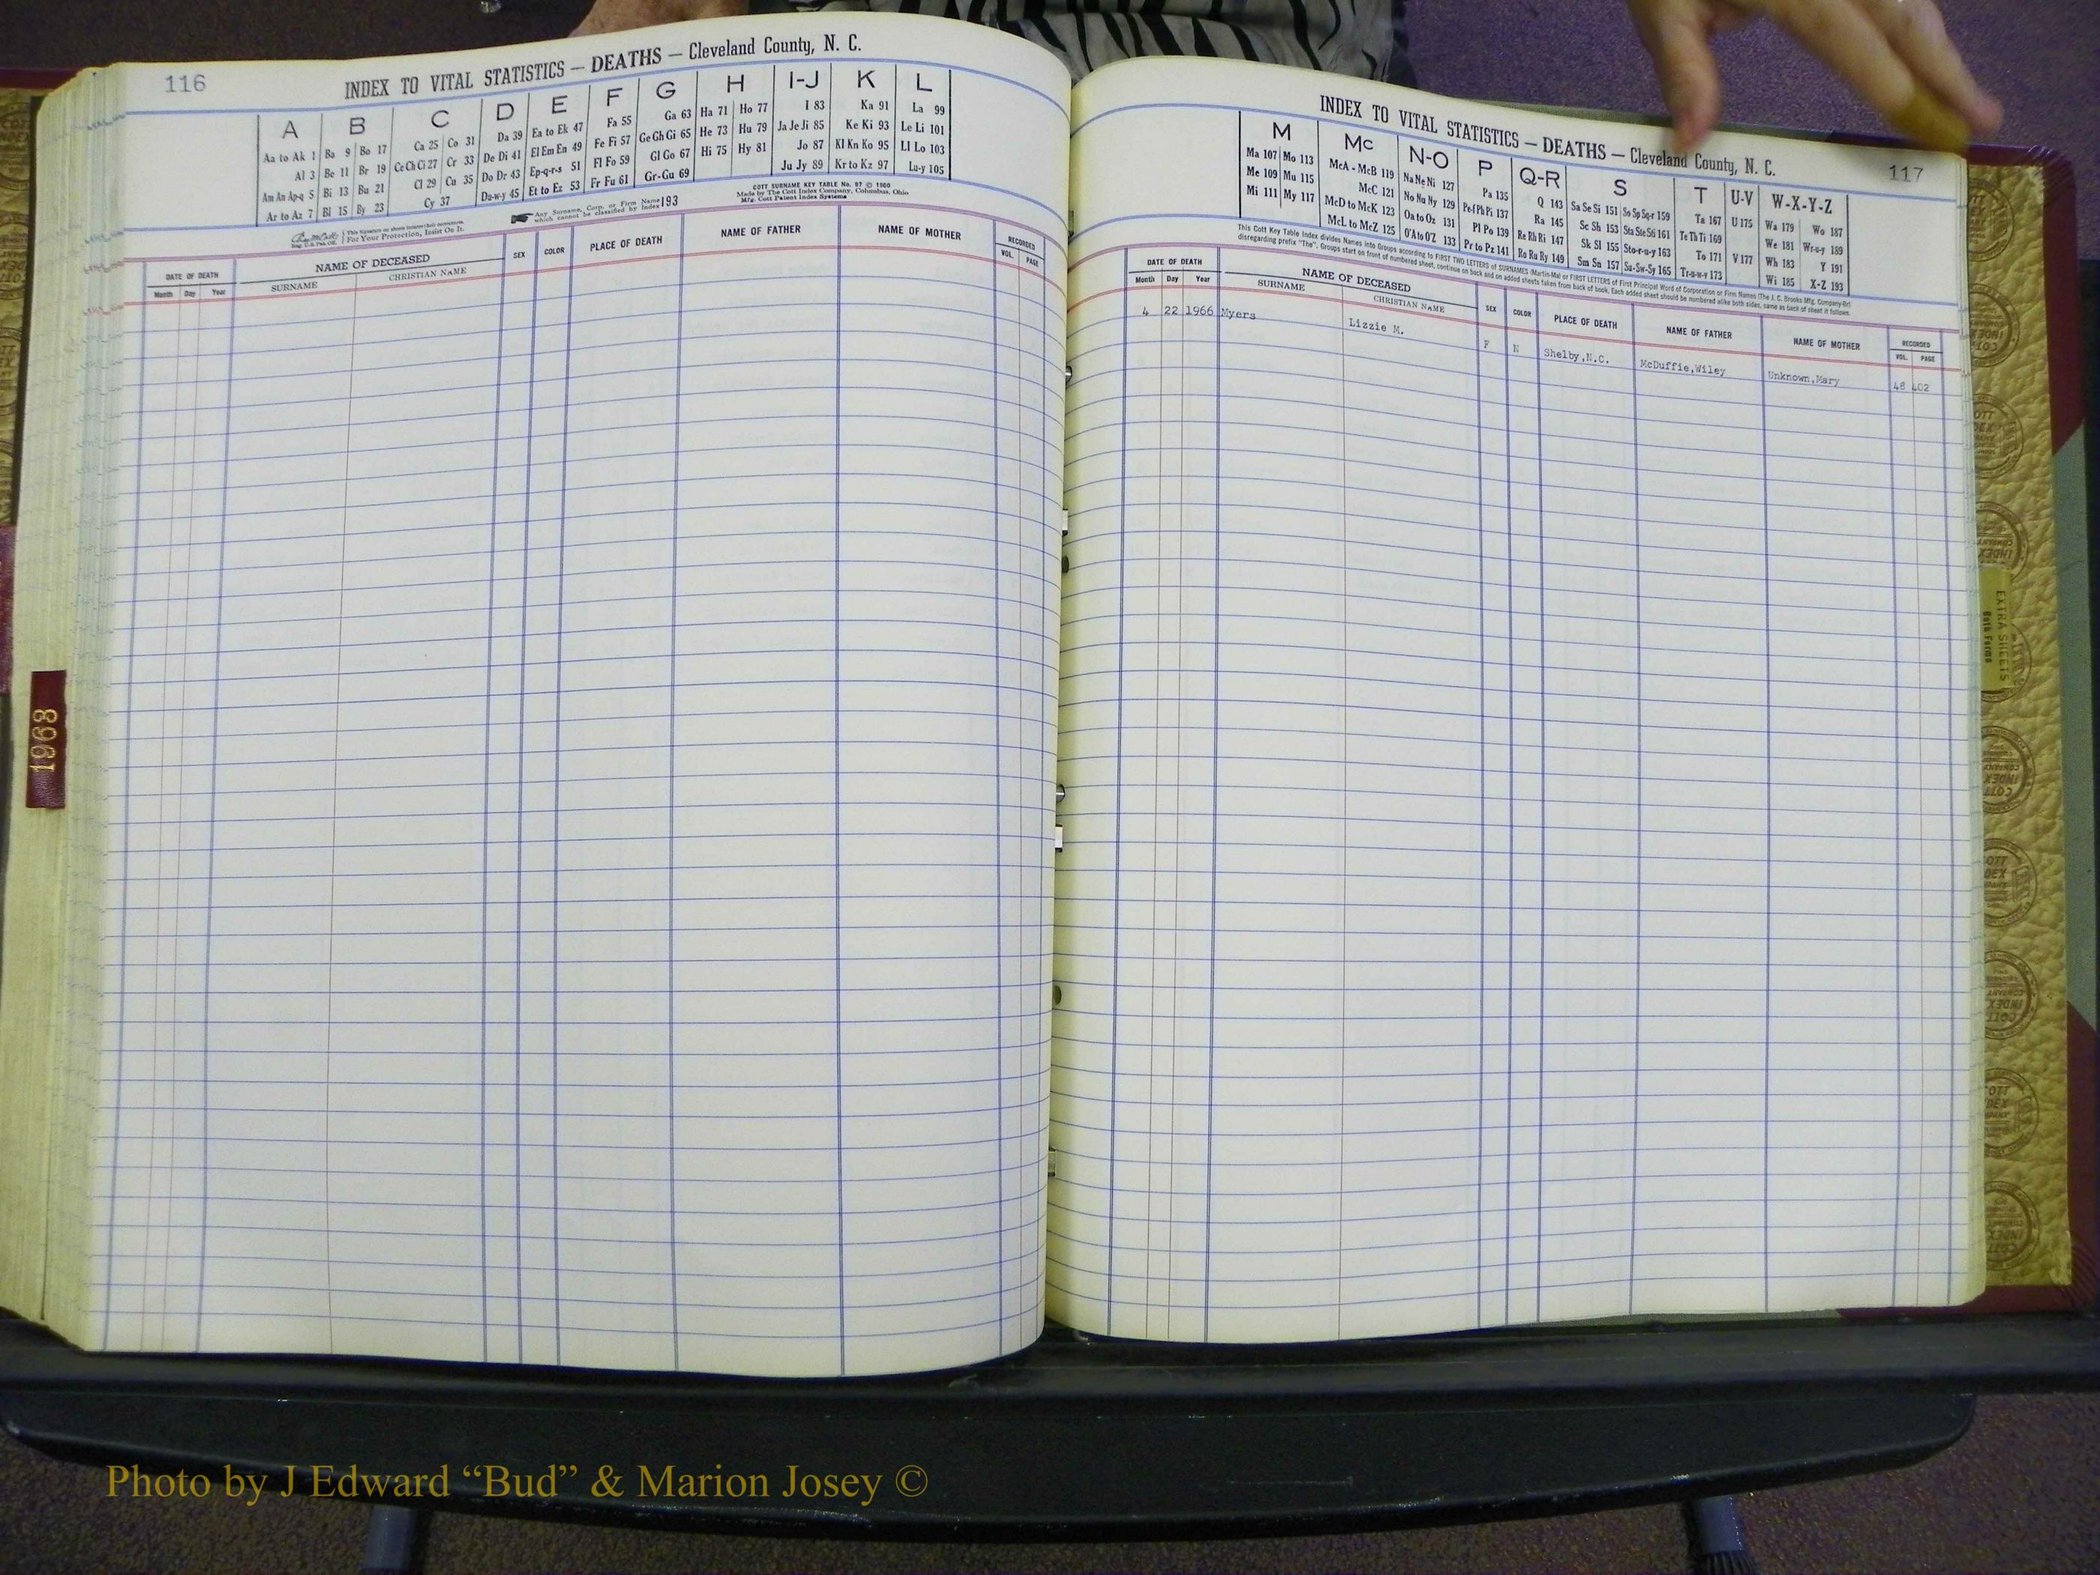 116
INDEX TO VITAL STATISTICS — DEATHS — Cleveland County, N. C.
A B C D E F G H I-J K L
Aa to Ak 1 Ba 9 Bo 17 Ca 25 Co 31 Da 39 Ea to Ek 47 Fa 55 Ga 63 Ha 71 Ho 77 I 83 Ka 91 La 99
Al 3 Be 11 Br 19 Ce Ch Ci 27 Cr 33 De Di 41 El Em En 49 Fe Fi 57 Ge Gh Gi 65 He 73 Hu 79 Ja Je Ji 85 Ke Ki 93 Le Li 101
Am An Ap-q 5 Bi 13 Bu 21 Cl 29 Cu 35 Do Dr 43 Ep-q-r-s 51 Fl Fo 59 Gl Go 67 Hi 75 Hy 81 Jo 87 Kl Kn Ko 95 Ll Lo 103
Ar to Az 7 Bl 15 By 23 Cy 37 Du-w-y 45 Et to Ez 53 Fr Fu 61 Gr-Gu 69 Ju Jy 89 Kr to Kz 97 Lu-y 105
COTT SURNAME KEY TABLE No. 97 © 1960
Made by The Cott Index Company, Columbus, Ohio
Mfg. Cott Patent Index Systems
Any Surname, Corp. or Firm Name which cannot be classified by Index 193
For Your Protection, Insist On It.
DATE OF DEATH NAME OF DECEASED SEX COLOR PLACE OF DEATH NAME OF FATHER NAME OF MOTHER RECORDED
Month Day Year SURNAME CHRISTIAN NAME VOL. PAGE
1963
117
INDEX TO VITAL STATISTICS — DEATHS — Cleveland County, N. C.
M Mc N-O P Q-R S T U-V W-X-Y-Z
Ma 107 Mo 113 McA - McB 119 Na Ne Ni 127 Pa 135 Q 143 Sa Se Si 151 So Sp Sq-r 159 Ta 167 U 175 Wa 179 Wo 187
Me 109 Mu 115 McC 121 No Nu Ny 129 Pe-f Ph Pi 137 Ra 145 Sc Sh 153 Sta Ste Sti 161 Te Th Ti 169 We 181 Wr-u-y 189
Mi 111 My 117 McD to McK 123 Oa to Oz 131 Pl Po 139 Re Rh Ri 147 Sk Sl 155 Sto-r-u-y 163 To 171 V 177 Wh 183 Y 191
McL to McZ 125 O'A to O'Z 133 Pr to Pz 141 Ro Ru Ry 149 Sm Sn 157 Su-Sw-Sy 165 Tr-u-w-y 173 Wi 185 X-Z 193
This Cott Key Table Index divides Names into Groups according to FIRST TWO LETTERS of SURNAMES (Martin-Ma) or FIRST LETTERS of First Principal Word of Corporation or Firm Names (The J. C. Brooks Mfg. Company-Br)
disregarding prefix "The". Groups start on front of numbered sheet, continue on back and on added sheets taken from back of book. Each added sheet should be numbered alike both sides, same as back of sheet it follows.
DATE OF DEATH NAME OF DECEASED SEX COLOR PLACE OF DEATH NAME OF FATHER NAME OF MOTHER RECORDED
Month Day Year SURNAME CHRISTIAN NAME VOL. PAGE
4 22 1966 Myers Lizzie M. F N Shelby,N.C. McDuffie,Wiley Unknown,Mary 48 402
EXTRA SHEETS
Both Forms
COTT INDEX COMPANY
Photo by J Edward “Bud” & Marion Josey ©